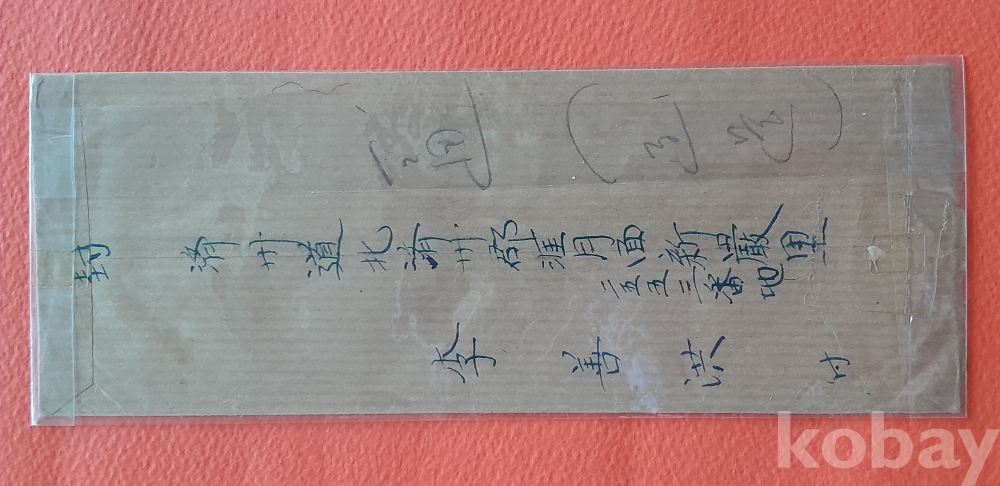 封
濟州道北濟州郡涯月面新嚴里
二五五三番地
李善洪
付
kobay